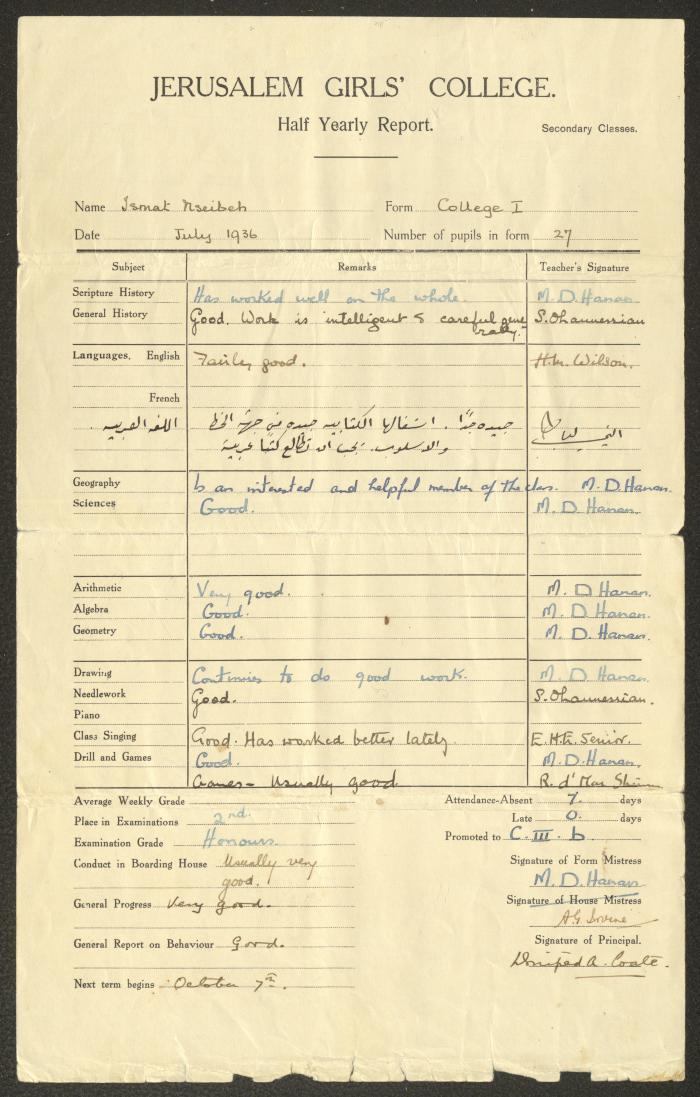 JERUSALEM GIRLS' COLLEGE.
Half Yearly Report.
Secondary Classes.
Name Ismat Nseibeh Form College I
Date July 1936 Number of pupils in form 27
Subject Remarks Teacher's Signature
Scripture History Has worked well on the whole. M. D. Hanan
General History Good. Work is intelligent & careful gene S. Ohannessian
rally.
Languages, English Fairly good. H.M. Wilson.
French
اللغه العربيه . جيده جدًا . اشغالها الكتابيه جيده في جهة الخط
والاسلوب. يجب ان تطالع كتبًا عربية
Geography Is an interested and helpful member of the class. M. D. Hanan.
Sciences Good. M. D. Hanan.
Arithmetic Very good. M. D Hanan.
Algebra Good. M. D. Hanan.
Geometry Good. M. D. Hanan.
Drawing Continues to do good work. M. D. Hanan.
Needlework Good. S. Ohannessian.
Piano
Class Singing Good. Has worked better lately. E. H. Senior.
Drill and Games Good. M. D. Hanan.
Games - Usually good. R. d'Mar
Average Weekly Grade Attendance-Absent 7. days
Place in Examinations 2nd. Late 0. days
Examination Grade Honours. Promoted to C. III. b.
Conduct in Boarding House Usually very Signature of Form Mistress
good. M. D. Hanan
General Progress Very good. Signature of House Mistress
A.G. Irvine
General Report on Behaviour Good. Signature of Principal.
Winifred A. Coate.
Next term begins October 7th.